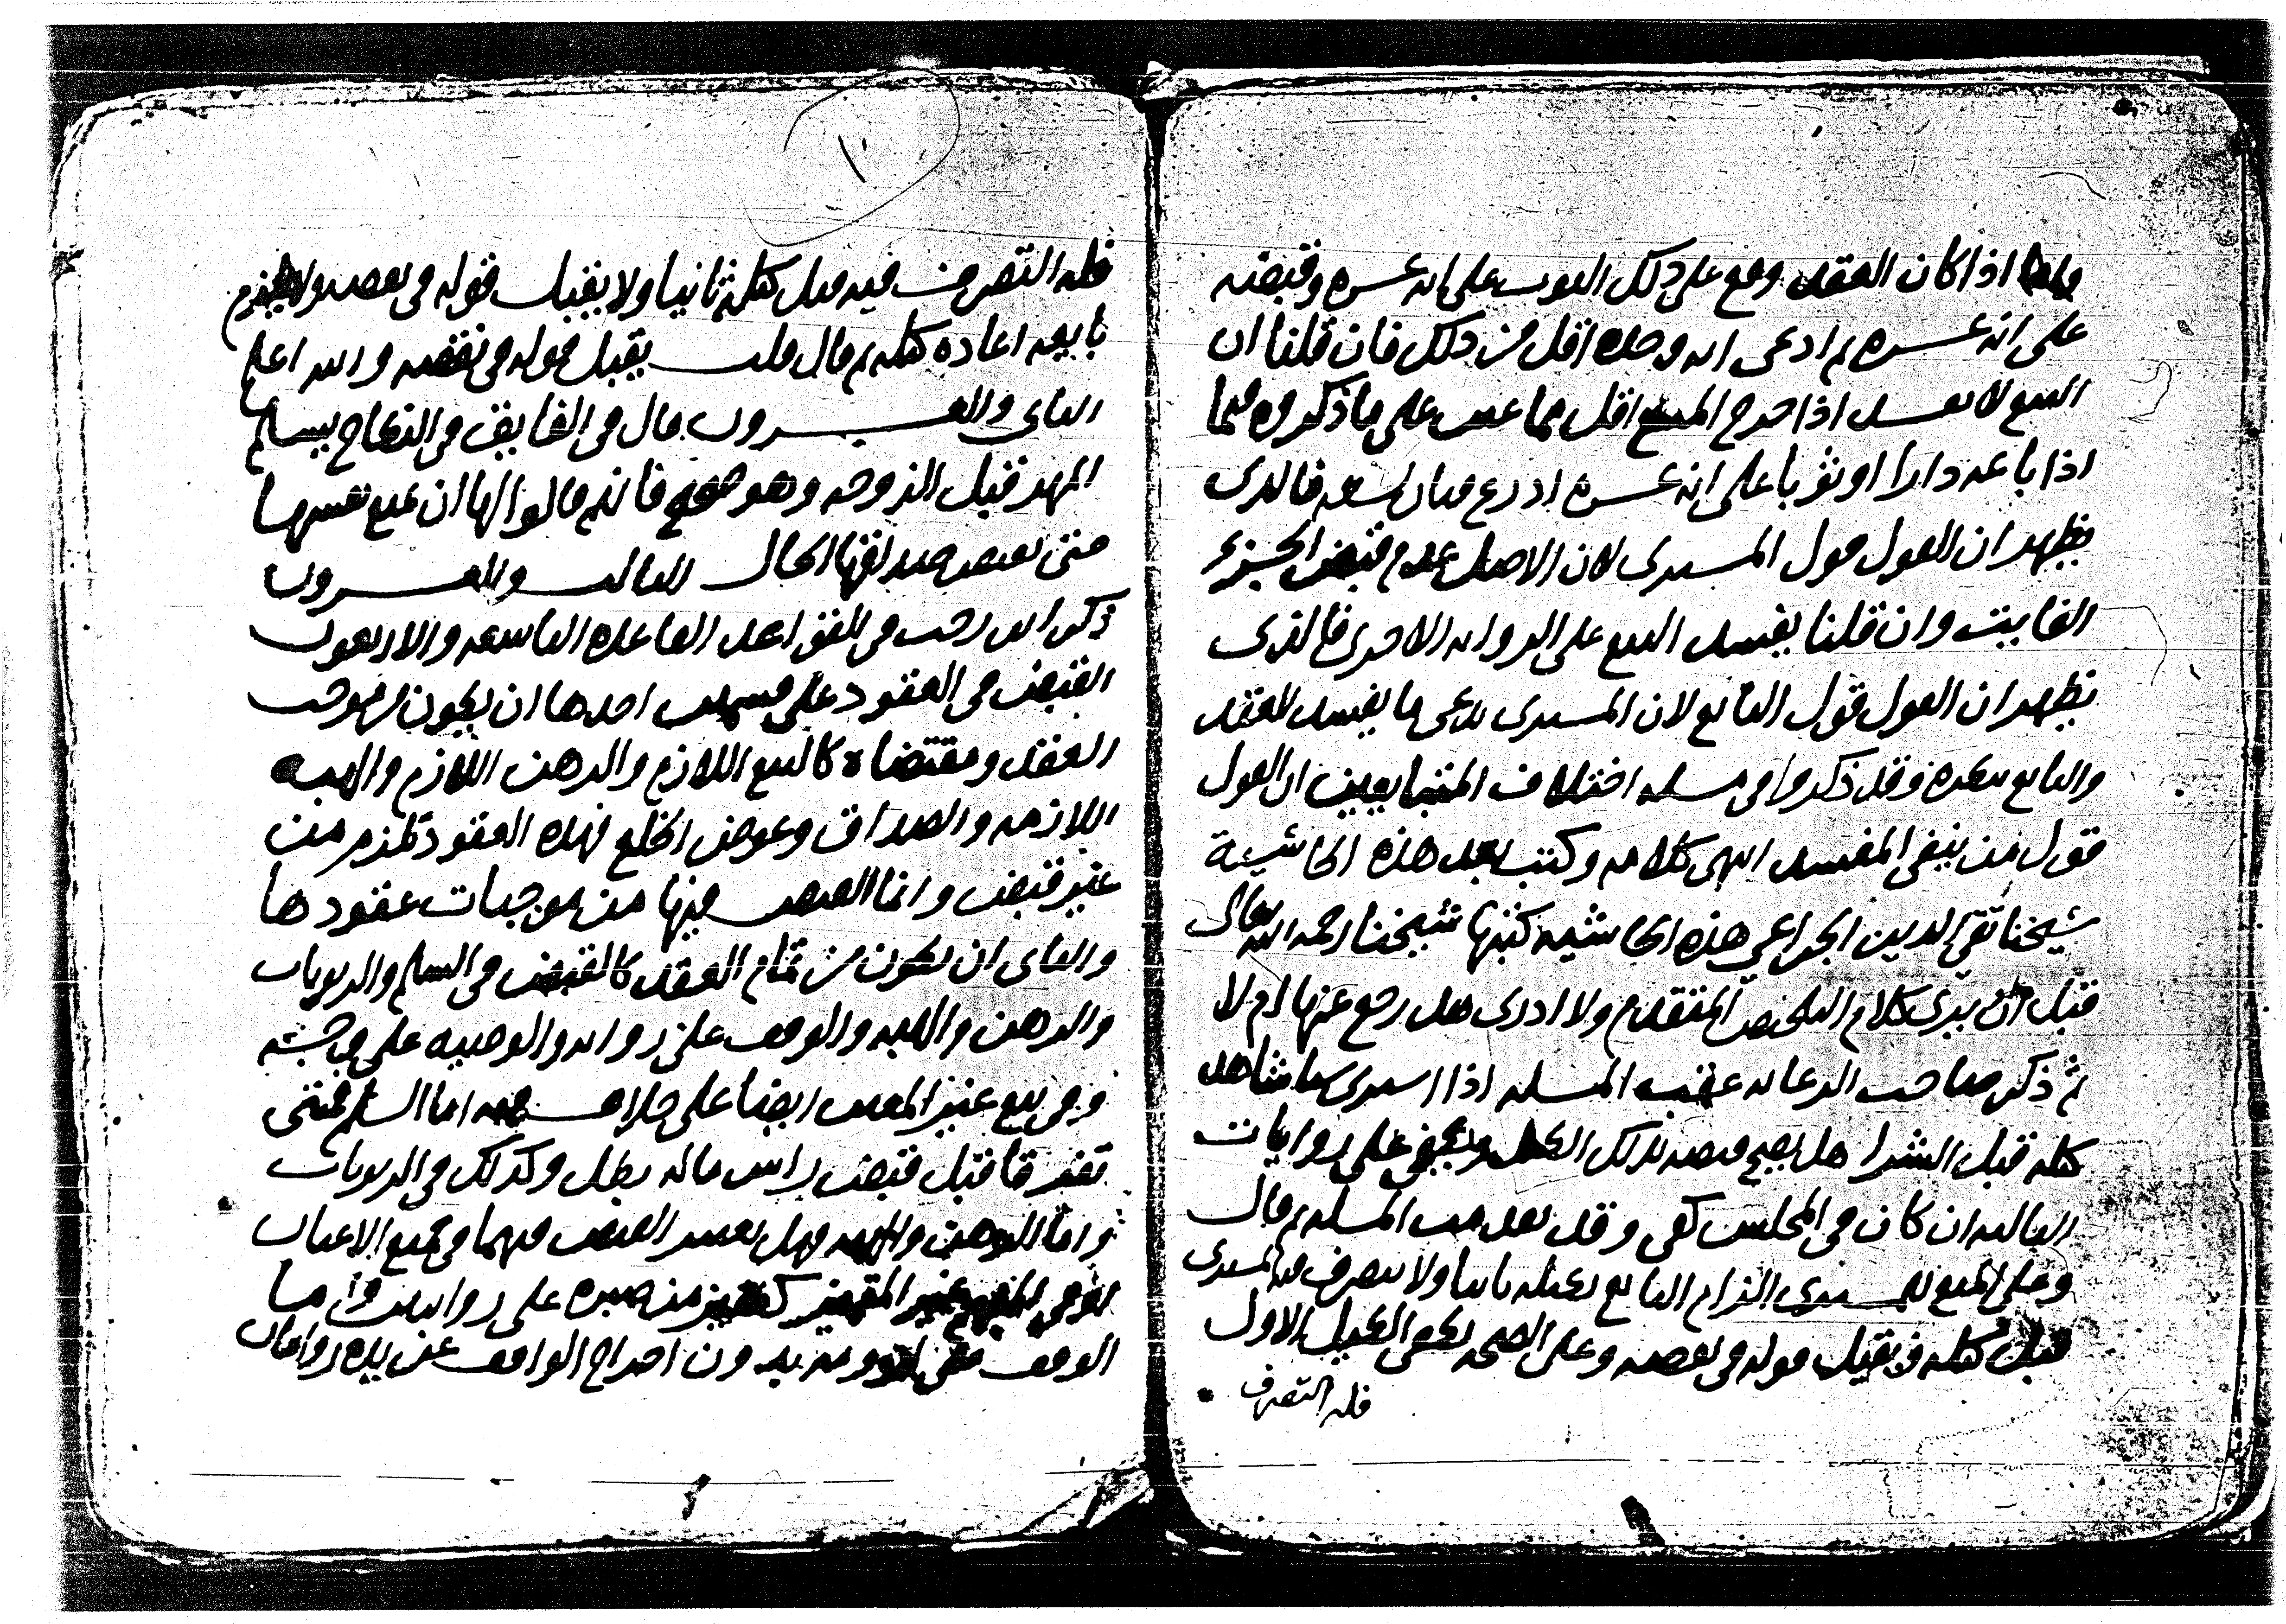 واما اذا كان العقد وقع على ذلك الثوب على انه عشرة وقبضه
على انه عشرة ثم ادعى انه وجده اقل من ذلك فان قلنا ان
البيع لا يفسد اذا خرج المبيع اقل مما عين على ما ذكروه فيما
اذا باعه دارا او ثوبا على انه عشرة اذرع فبان تسعه فالذي
يظهر ان القول قول المشتري لان الاصل عدم قبض الجزء
الفايت وان قلنا يفسد البيع على الروايه الاخرى فالذي
يظهر ان القول قول البايع لان المشتري يدعي ما يفسد العقد
والبايع ينكره وقد ذكروا في مسله اختلاف المتبايعين ان القول
قول من ينفي المفسد انتهى كلامه وكتب بعد هذه الحاشية
شيخنا تقي الدين الجراعي هذه الحاشيه كتبها شيخنا رحمه الله تعالى
قبل ان يرى كلام التلخيص المتقدم ولا ادري هل رجع عنها ام لا
ثم ذكر صاحب الرعايه عقب المسله اذا اشترى ما شاهد
كيله قبل الشرا هل يصح قبضه بذلك الكيل ويكفي على روايات
الثالثه ان كان في المجلس كفى وقد تقدمت المسله ثم قال
وعلى المنع للمشتري الزام البايع بكيله ثانيا ولا يتصرف فيه المشتري
قبل كيله ويقبل قوله في نقصه وعلى الصحه يكفي الكيل الاول
فله التصرف
١٠
فله التصرف فيه قبل كيله ثانيا ولا يقبل قوله في نقصه ولا يلزم
بايعه اعادة كيله ثم قال قلت يقبل قوله في نقصه والله اعلم
الثاني والعشرون قال في الفايق في النكاح يسلم
المهر قبل الزوجه وهو صحيح فانهم قالوا لها ان تمنع نفسها
حتى تقبض صداقها الحال الثالث والعشرون
ذكر ابن رجب في القواعد القاعده التاسعه والاربعون
القبض في العقود على قسمين احدها ان يكون من موجب
العقد ومقتضاه كالبيع اللازم والرهن اللازم والهبه
اللازمه والصداق وعوض الخلع فهذه العقود تلزم من
غير قبض وانما القبض فيها من موجبات عقودها
والثاني ان يكون من تمام العقد كالقبض في السلم والربويات
والرهن والهبه والوقف على روايه والوصيه على وجه
وفي بيع غير المعين ايضا على خلاف فيه اما السلم فمتى
تفرقا قبل قبض راس ماله بطل وكذلك في الربويات
واما الرهن والهبه فهل يعتبر القبض فيهما في جميع الاعيان
او في المبهم غير المتميز كقفيز من صبره على روايتين واما
الوقف ففي لزومه بدون اخراج الواقف عن يده روايتان